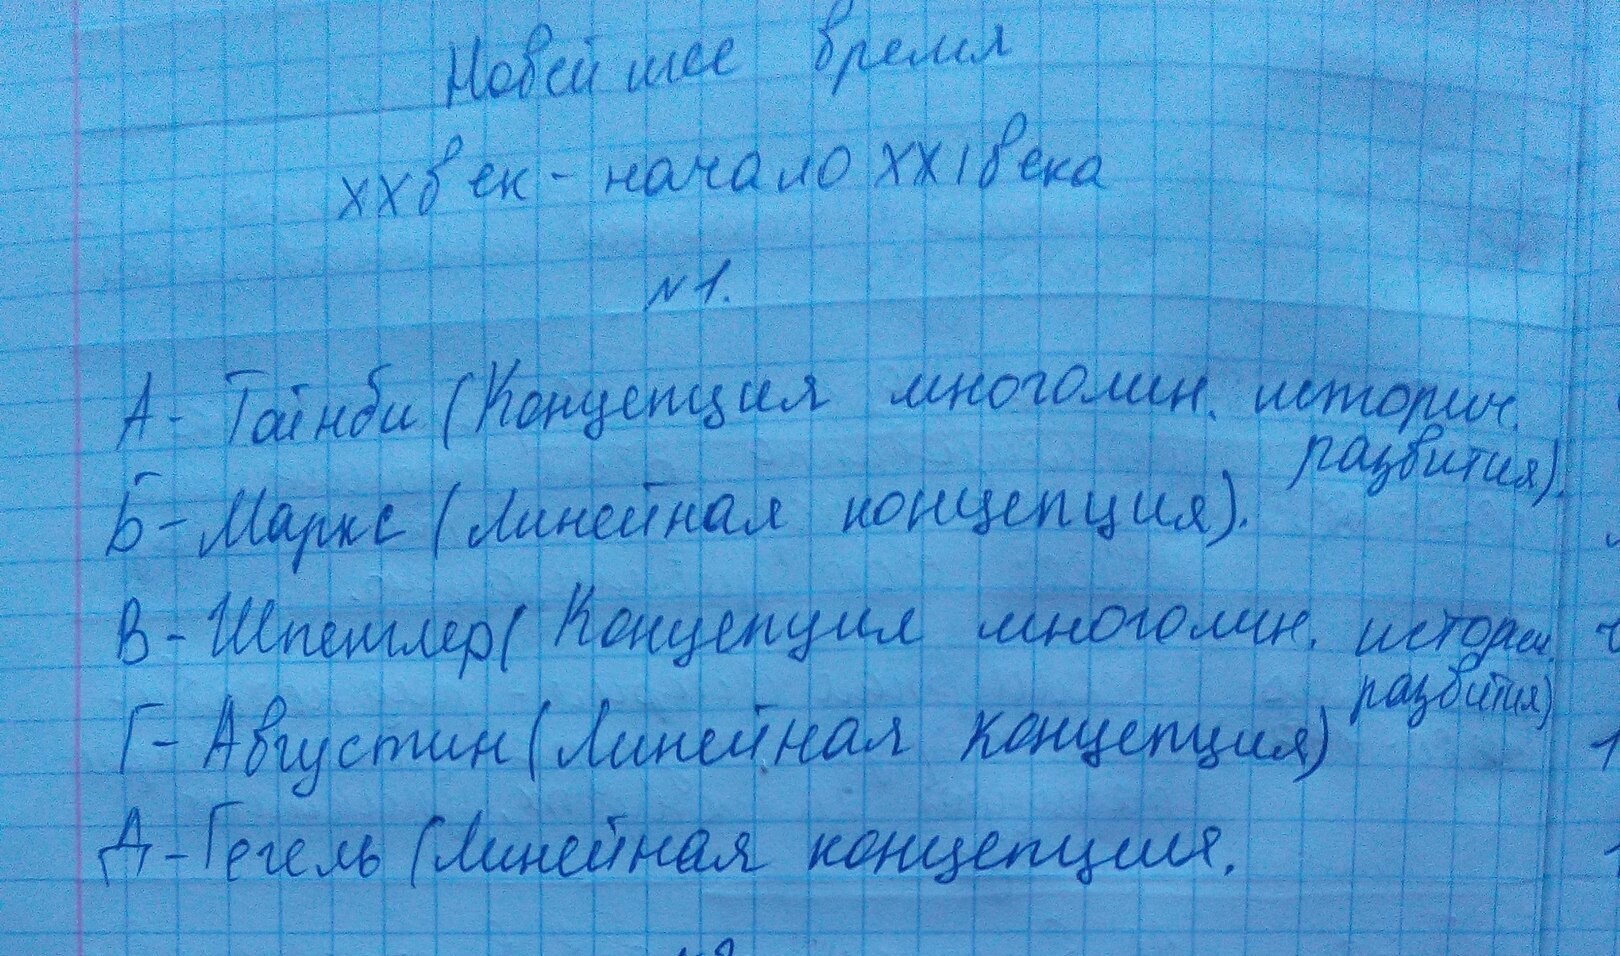 Новейшее время
XX век - начало XXI века
№1.
А - Тойнби (Концепция многолин. историч.
развития).
Б - Маркс (Линейная концепция).
В - Шпенглер (Концепция многолин. истории.
развития)
Г - Августин (Линейная концепция)
Д - Гегель (Линейная концепция.